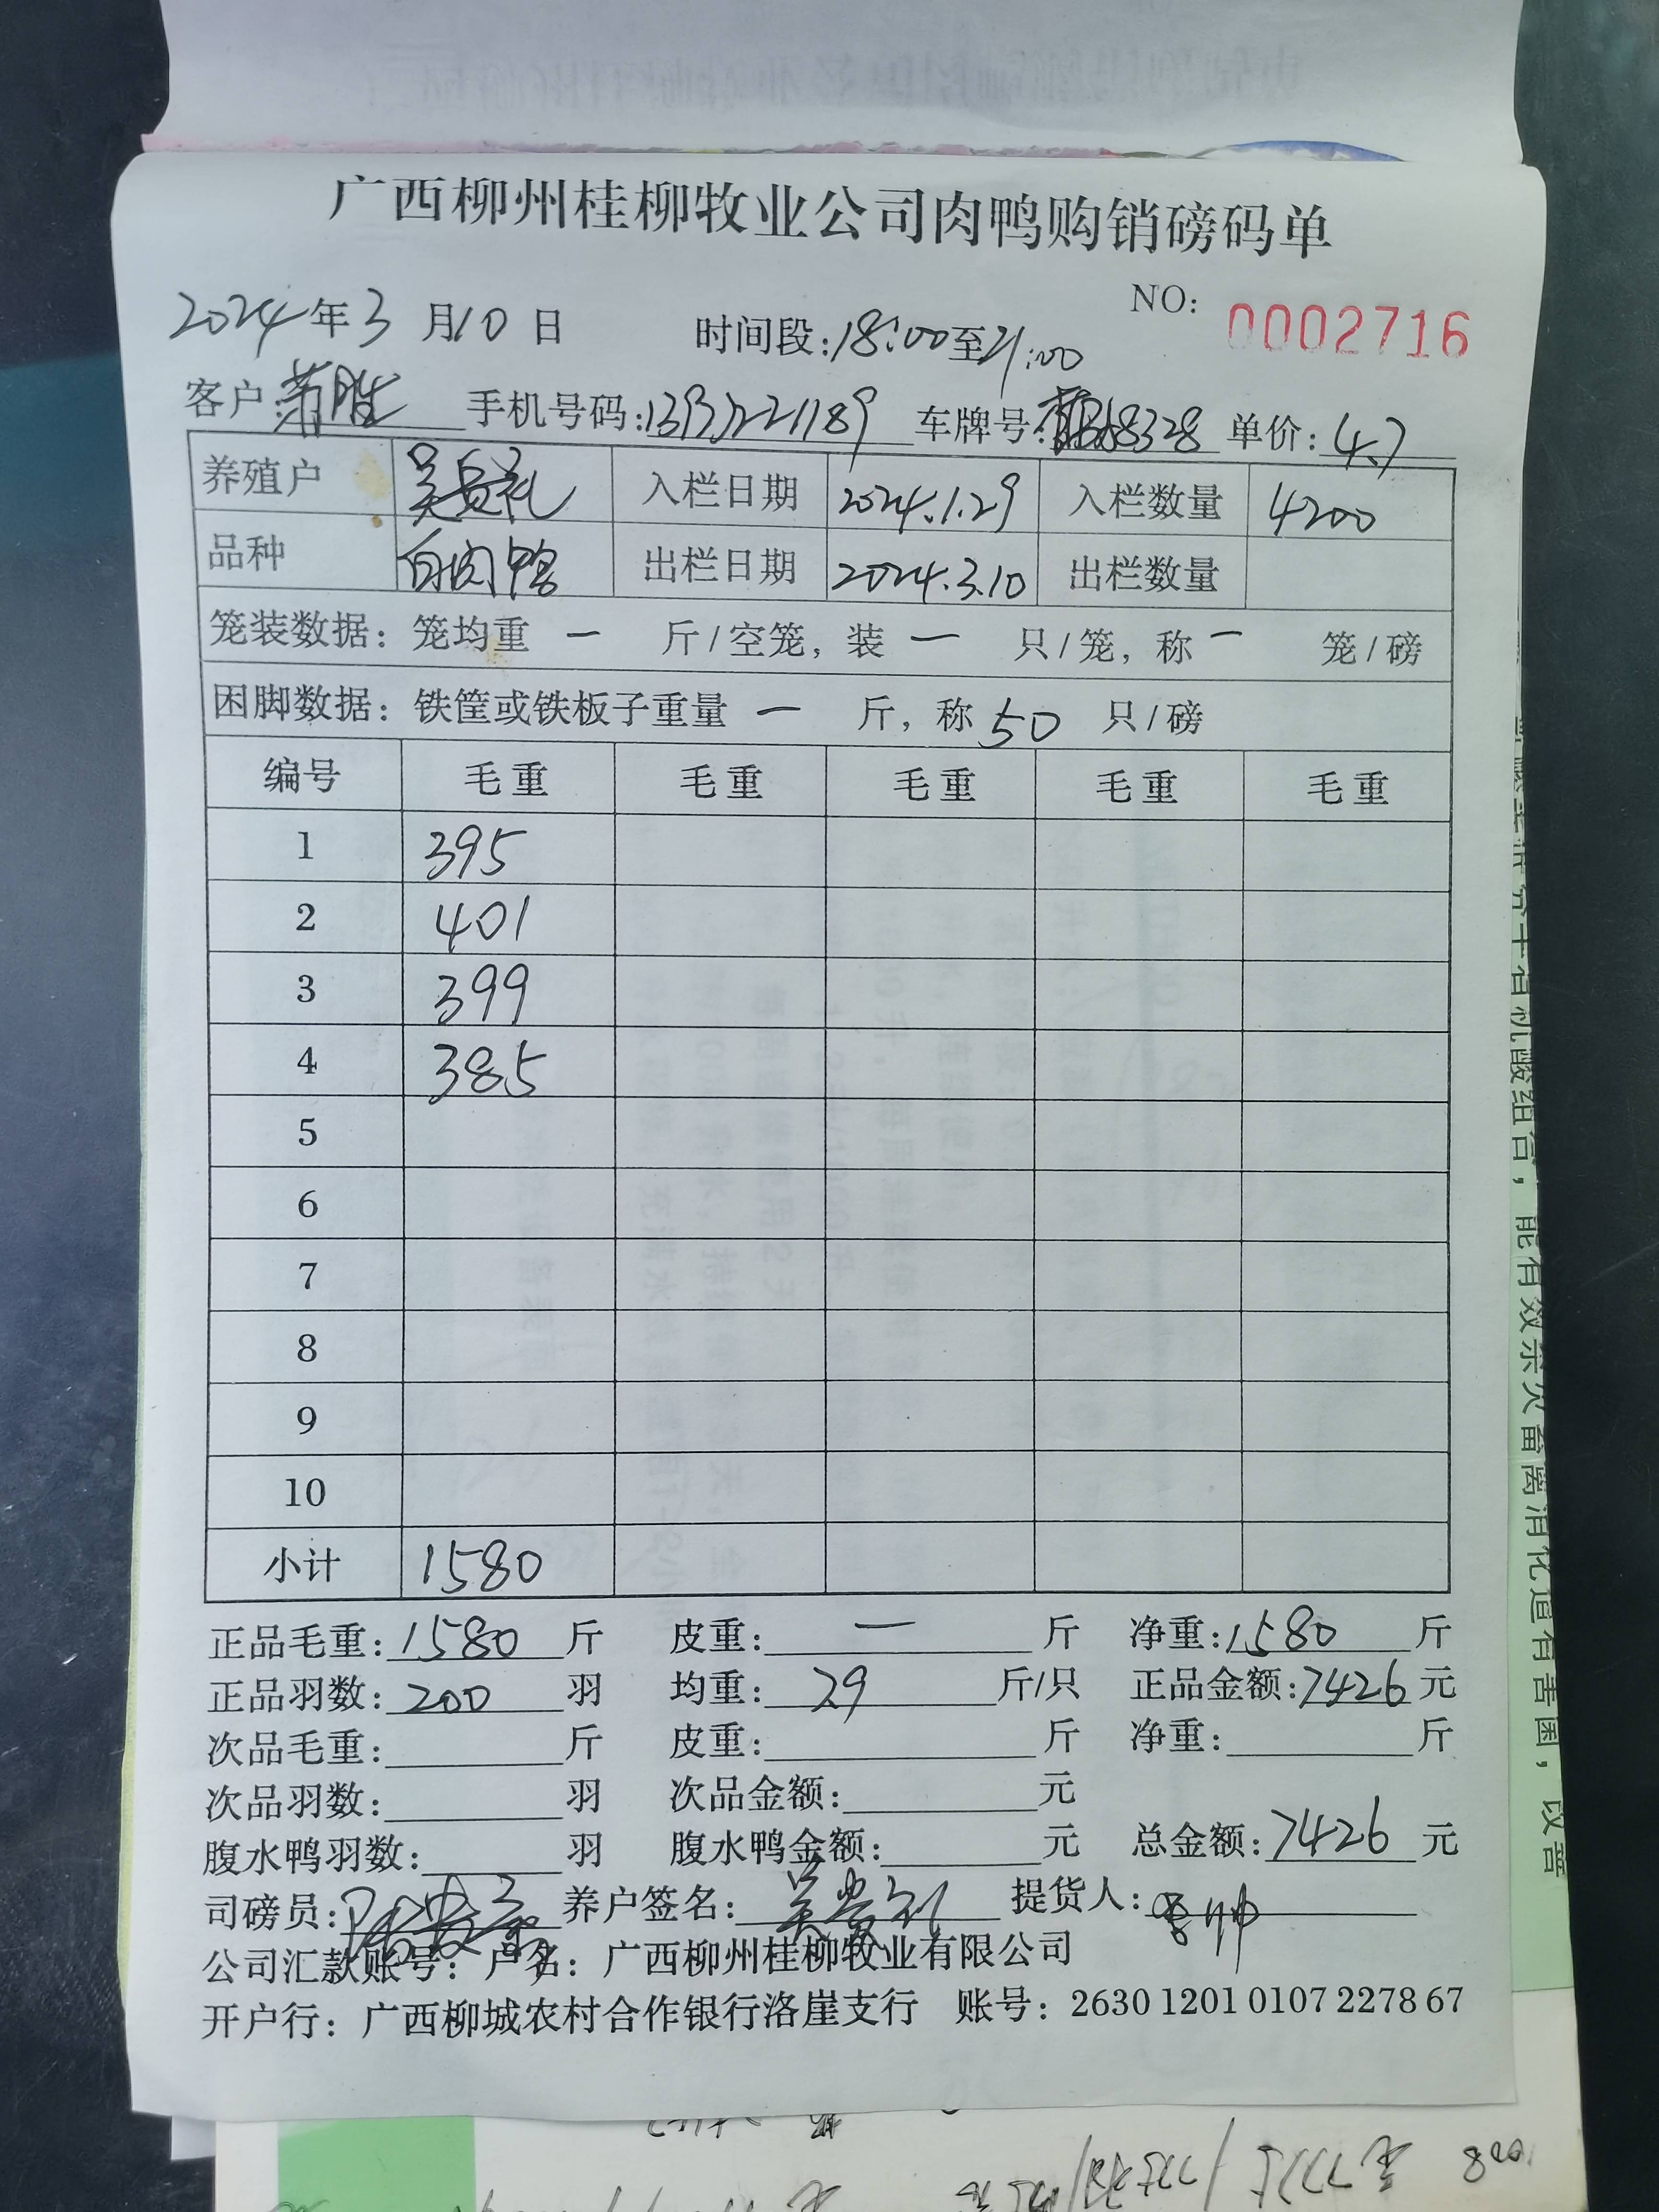 广西柳州桂柳牧业公司肉鸭购销磅码单
NO: 0002716
2024年3月10日 时间段:18:00至21:00
客户: 手机号码: 车牌号: 68328 单价:4.7
养殖户 吴贵礼 入栏日期 2024.1.29 入栏数量 4200
品种 白肉鸭 出栏日期 2024.3.10 出栏数量
笼装数据: 笼均重 一 斤/空笼, 装 一 只/笼, 称 一 笼/磅
困脚数据: 铁筐或铁板子重量 一 斤, 称 50 只/磅
编号 毛重 毛重 毛重 毛重 毛重
1 395
2 401
3 399
4 385
5
6
7
8
9
10
小计 1580
正品毛重: 1580 斤 皮重: 一 斤 净重: 1580 斤
正品羽数: 200 羽 均重: 7.9 斤/只 正品金额: 7426 元
次品毛重: 斤 皮重: 斤 净重: 斤
次品羽数: 羽 次品金额: 元
腹水鸭羽数: 羽 腹水鸭金额: 元 总金额: 7426 元
司磅员: 养户签名: 吴贵礼 提货人:
公司汇款账号: 户名: 广西柳州桂柳牧业有限公司
开户行: 广西柳城农村合作银行洛崖支行 账号: 2630 1201 0107 2278 67